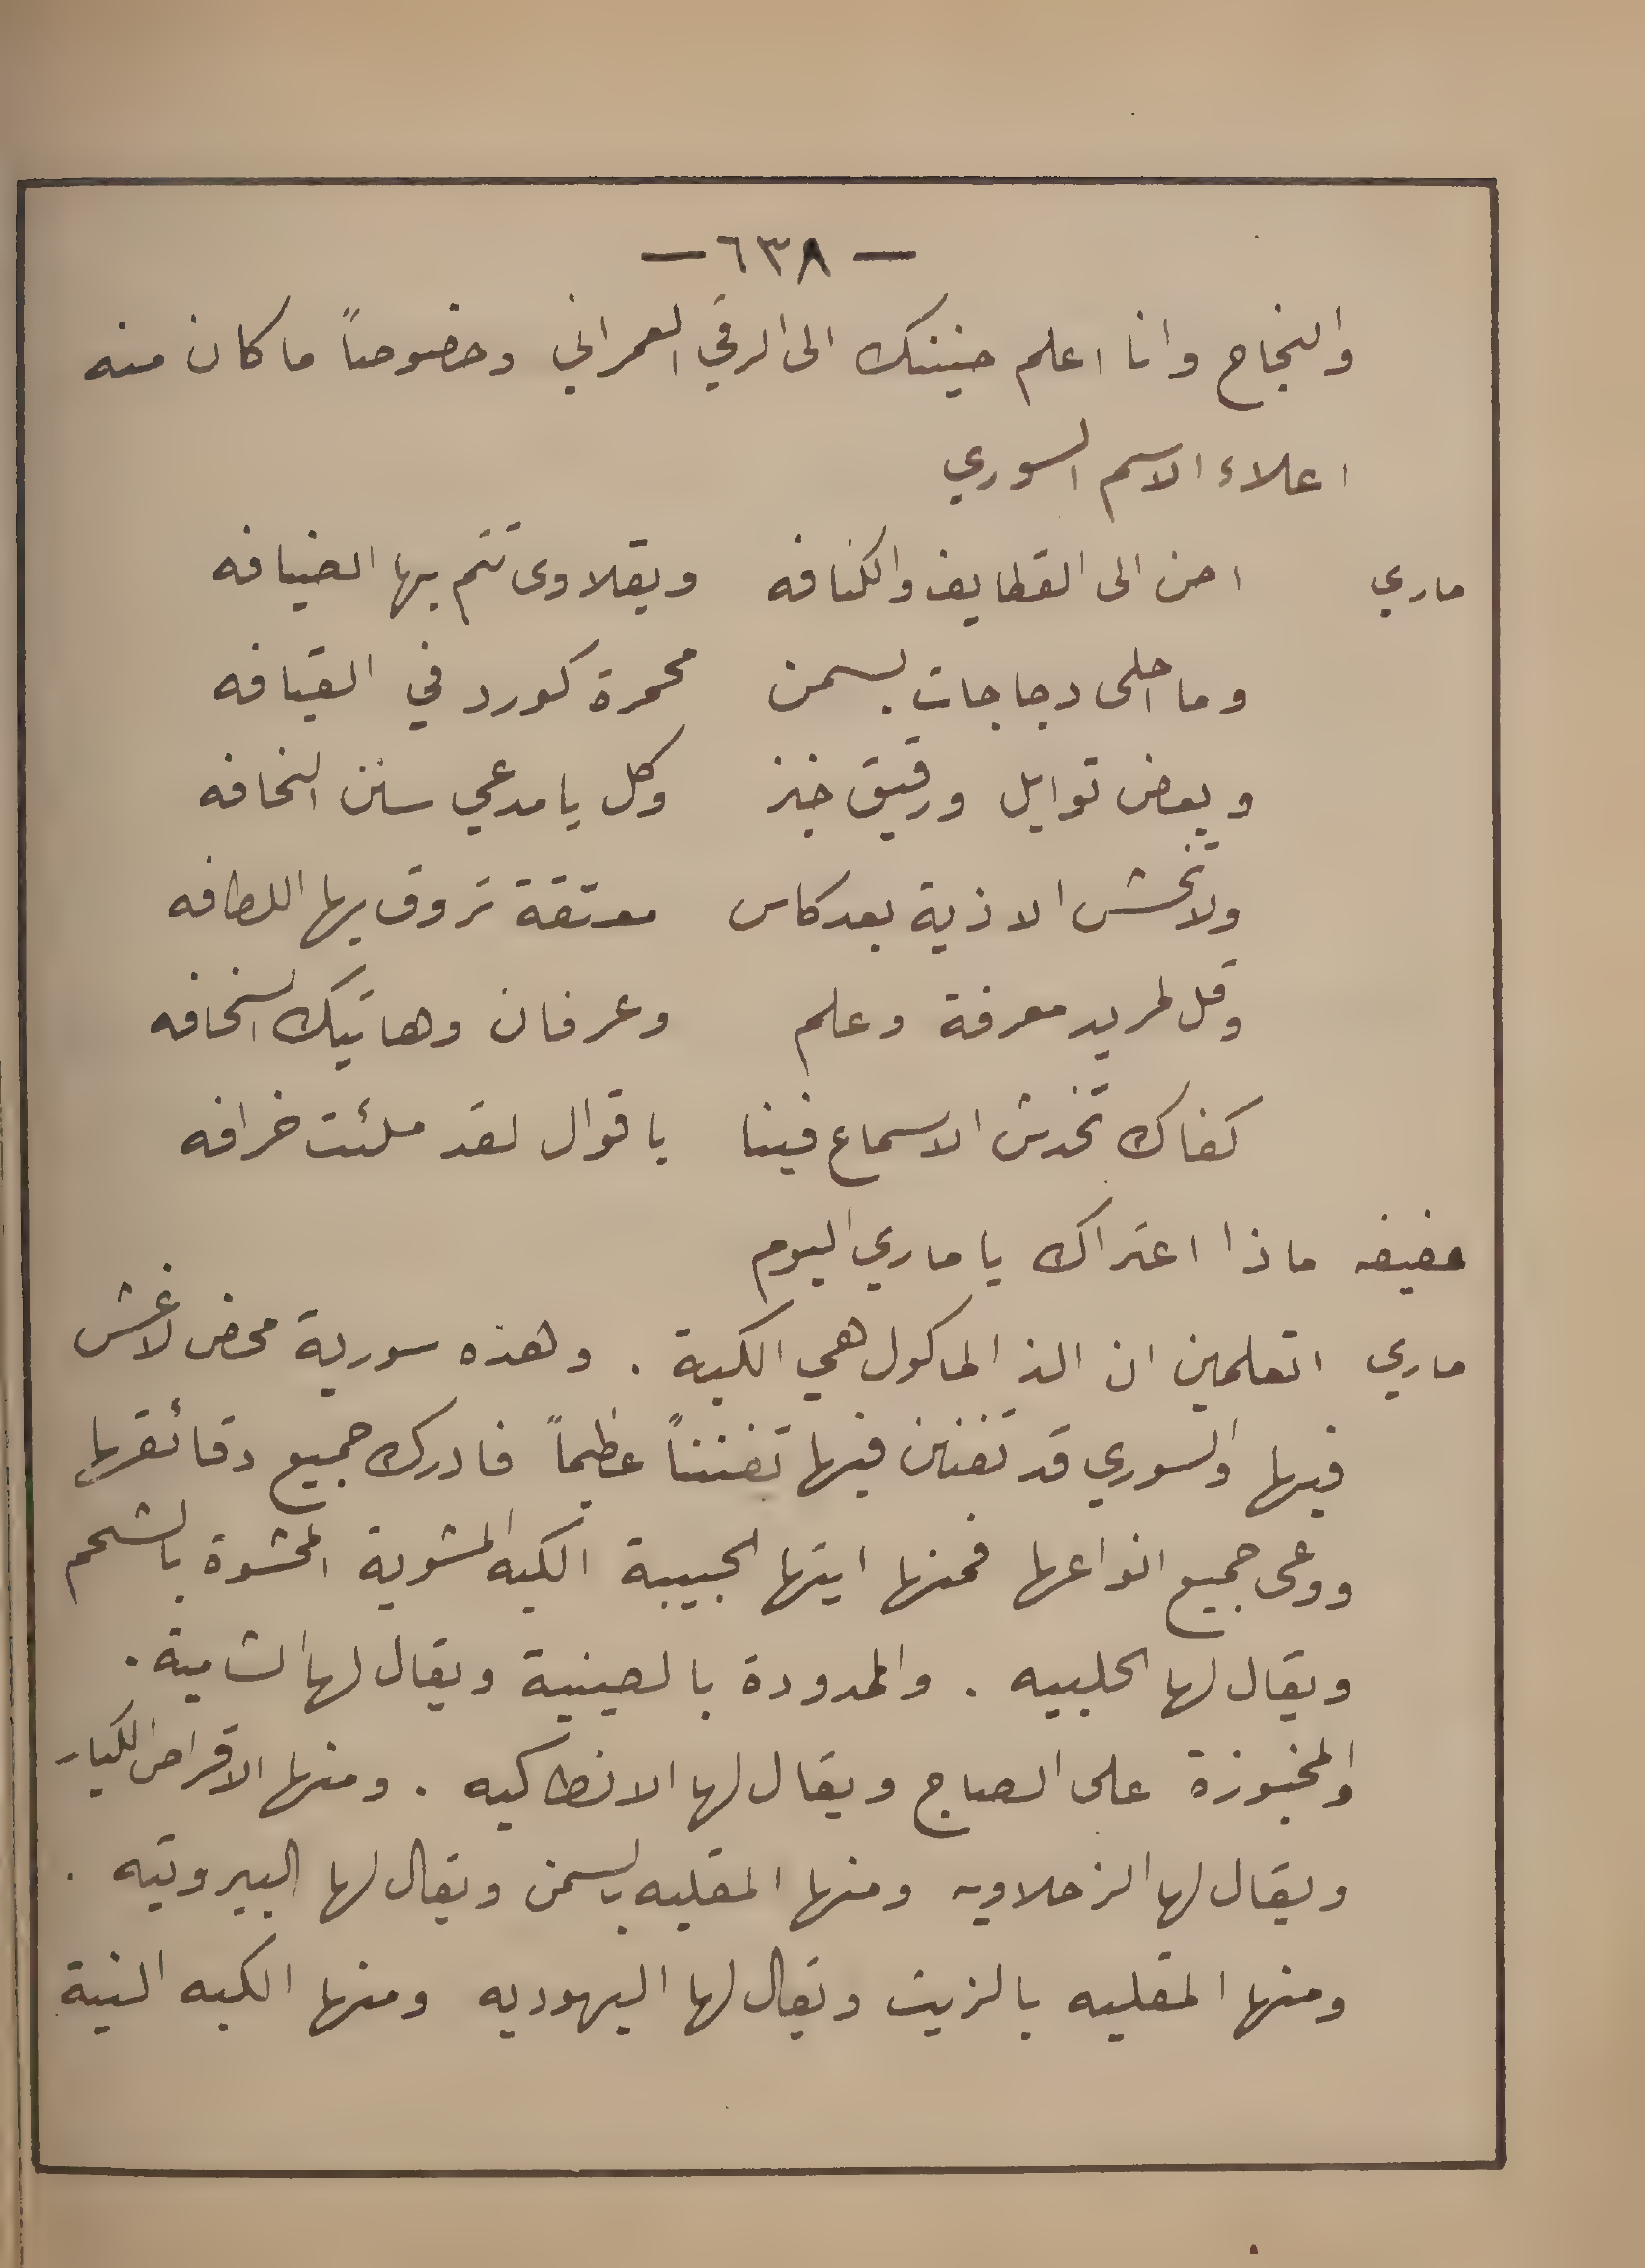 — ٦٣٨ —
والنجاح وانا اعلم حنينك الى الرقي العمراني وخصوصاً ما كان منه
اعلاء الاسم السوري
ماري احن الى القطايف والكنافه وبقلاوى تتم بها الضيافه
وما احلى دجاجات بسمن محمرة كورد في القيافه
وبعض توابل ورقيق خبز وكل يا مدعي سنن النحافه
ولا تخش الاذية بعد كاس معتقة تروق بها اللطافه
وقل لمريد معرفة وعلم وعرفان وهاتيك السخافه
كفاك تخدش الاسماع فينا باقوال لقد ملئت خرافه
عفيفه ماذا اعتراك يا ماري اليوم
ماري اتعلمين ان الذ الماكول هي الكبة . وهذه سورية محض لا غش
فيها والسوري قد تفنن فيها تفنناً عظيماً فادرك جميع دقائقها
ووعى جميع انواعها فمنها ايتها الحبيبة الكبه المشوية المحشوة بالشحم
ويقال لها الحلبيه . والممدودة بالصينية ويقال لها الشامية .
والمخبوزة على الصاج ويقال لها الانطاكيه . ومنها الاقراص الكبار
ويقال لها الزحلاويه ومنها المقليه بالسمن ويقال لها البيروتيه .
ومنها المقليه بالزيت ويقال لها اليهوديه ومنها الكبه النية